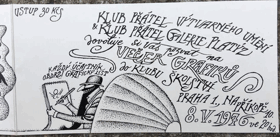 VSTUP 30 KČS
KLUB PŘÁTEL VÝTVARNÉHO UMĚNÍ
& KLUB PŘÁTEL GALERIE PLATÝZ
dovoluje si Vás pozvat na
VEČER GRAFIKŮ
do KLUBU ŠKOLSTVÍ
KAŽDÝ ÚČASTNÍK
OBDRŽÍ GRAFICKÝ LIST
PRAHA 1, NA PŘÍKOPĚ
8. V. 1976 ve